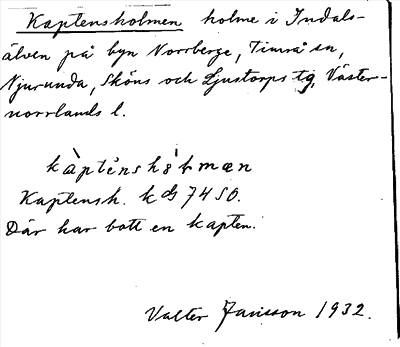 Kaptensholmen holme i Indals-
älven på byn Norrberge, Timrå sn,
Njurunda, Sköns och Ljustorps tg, Väster-
norrlands l.
Kaptensh. kds 74 SO.
Där har bott en kapten.
Valter Jansson 1932.